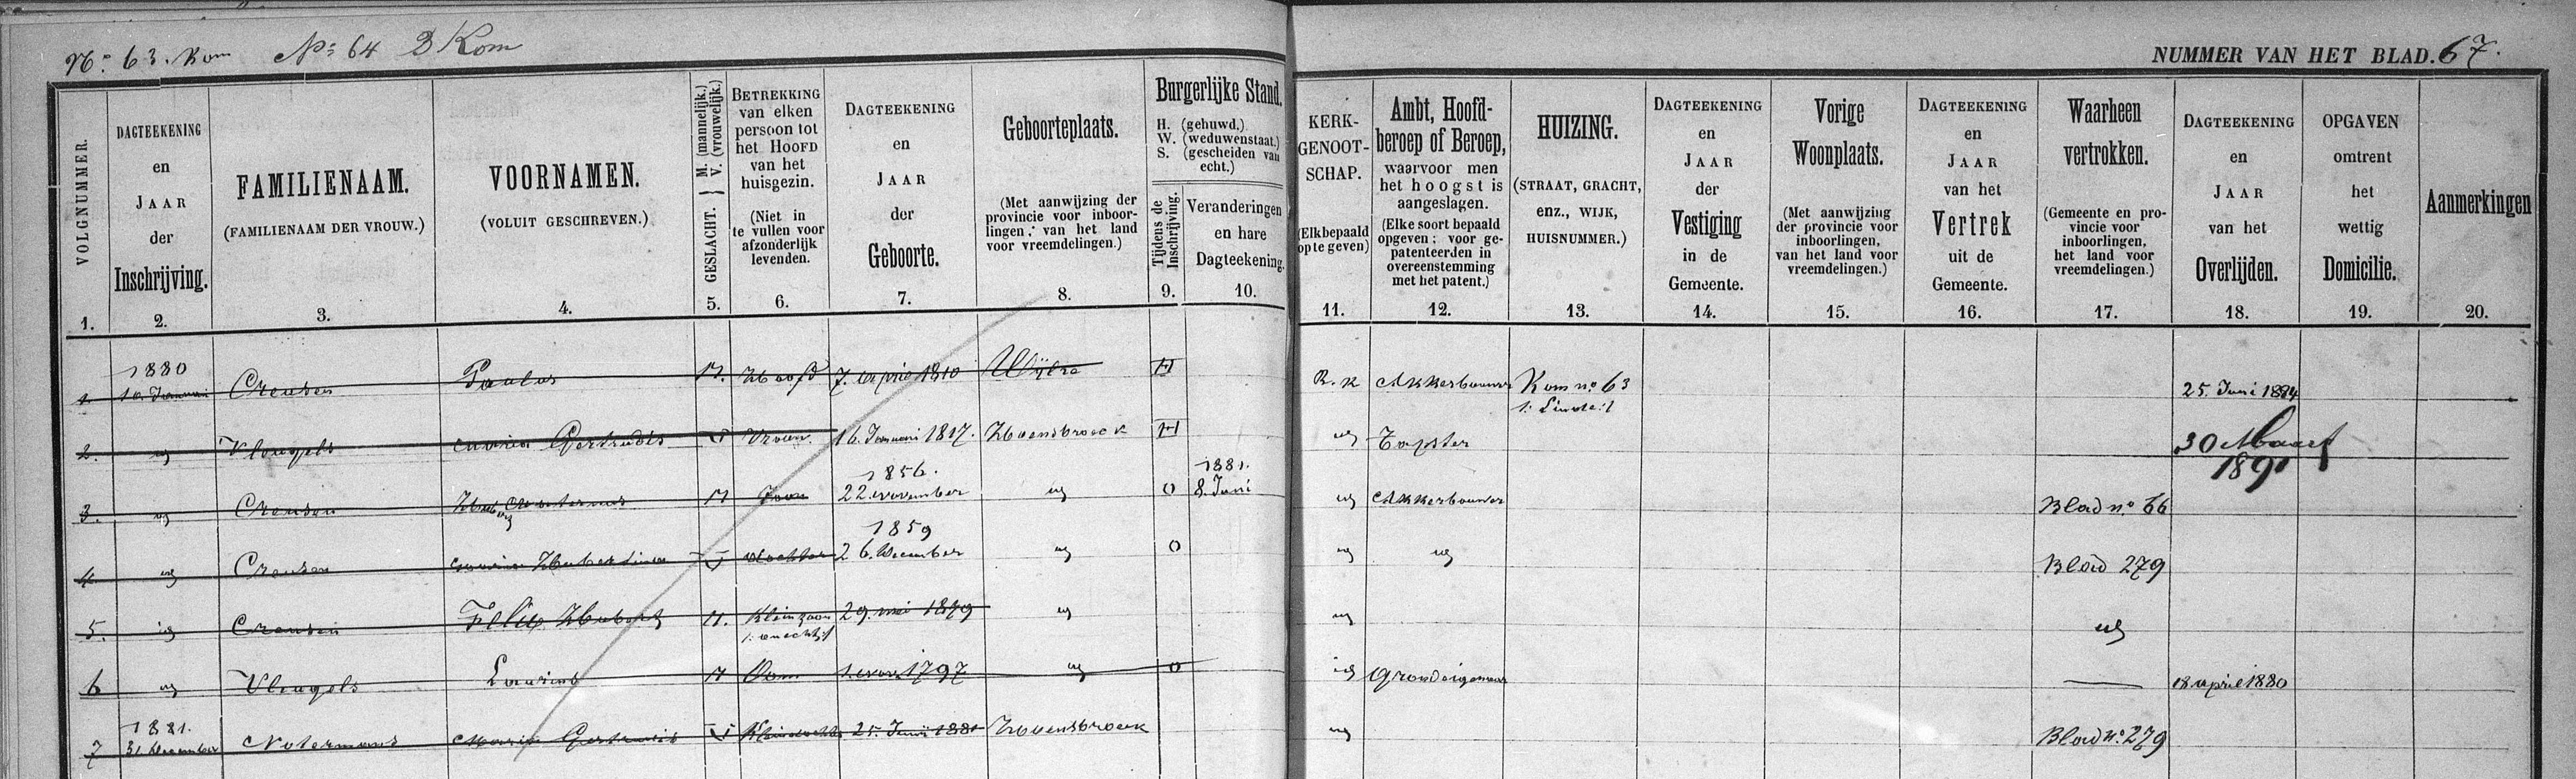 No. 63. Kom No 64 Kom
NUMMER VAN HET BLAD. 67.
VOLGNUMMER.
1.
DAGTEEKENING
en
JAAR
der
Inschrijving.
2.
FAMILIENAAM.
(FAMILIENAAM DER VROUW.)
3.
VOORNAMEN.
(VOLUIT GESCHREVEN.)
4.
GESLACHT. } M. (mannelijk.) V. (vrouwelijk.)
5.
BETREKKING
van elken
persoon tot
het HOOFD
van het
huisgezin.
(Niet in
te vullen voor
afzonderlijk
levenden.
6.
DAGTEEKENING
en
JAAR
der
Geboorte.
7.
Geboorteplaats.
(Met aanwijzing der
provincie voor inboor-
lingen; van het land
voor vreemdelingen.)
8.
Burgerlijke Stand.
H. (gehuwd,)
W. (weduwenstaat.)
S. (gescheiden van
echt.)
Tijdens de
Inschrijving.
9.
Veranderingen
en hare
Dagteekening.
10.
KERK-
GENOOT-
SCHAP.
(Elk bepaald
op te geven)
11.
Ambt, Hoofd-
beroep of Beroep,
waarvoor men
het hoogst is
aangeslagen.
(Elke soort bepaald
opgeven; voor ge-
patenteerden in
overeenstemming
met het patent.)
12.
HUIZING.
(STRAAT, GRACHT,
ENZ., WIJK,
HUISNUMMER.)
13.
DAGTEEKENING
en
JAAR
der
Vestiging
in de
Gemeente.
14.
Vorige
Woonplaats.
(Met aanwijzing
der provincie voor
inboorlingen,
van het land voor
vreemdelingen.)
15.
DAGTEEKENING
en
JAAR
van het
Vertrek
uit de
Gemeente.
16.
Waarheen
vertrokken.
(Gemeente en pro-
vincie voor
inboorlingen,
het land voor
vreemdelingen.)
17.
DAGTEEKENING
en
JAAR
van het
Overlijden.
18.
OPGAVEN
omtrent
het
wettig
Domicilie.
19.
Aanmerkingen
20.
1880
1. 10. Januari Creusen Paulus M. Hoofd 7. april 1810 Wijlre H R. K Akkerbouwer Kom no 63 25. Juni 1884
2. ig Vleugels Maria Gertrudis V Vrouw 16. Januari 1817. Hoensbroeck H ig Tapster 30 Maart
1891
1856. 1881.
3. ig Creusen M Zoon 22 november ig O 8. Juni ig Akkerbouwer Blad no 66
1859
4. ig Creusen Maria Hubertina V dochter 26. december ig O ig ig Blad 279
5. ig Creusen Felix Hubert M. Kleinzoon 29. mei 1879 ig ig ig
6 ig Vleugels M Oom 1. nov. 1797 ig O ig Grondeigenaar 18 april 1880
1881.
7 31. december Notermans Maria Gertrudis V Kleindochter 25. Juni 1881 Hoensbroeck ig Blad no. 279